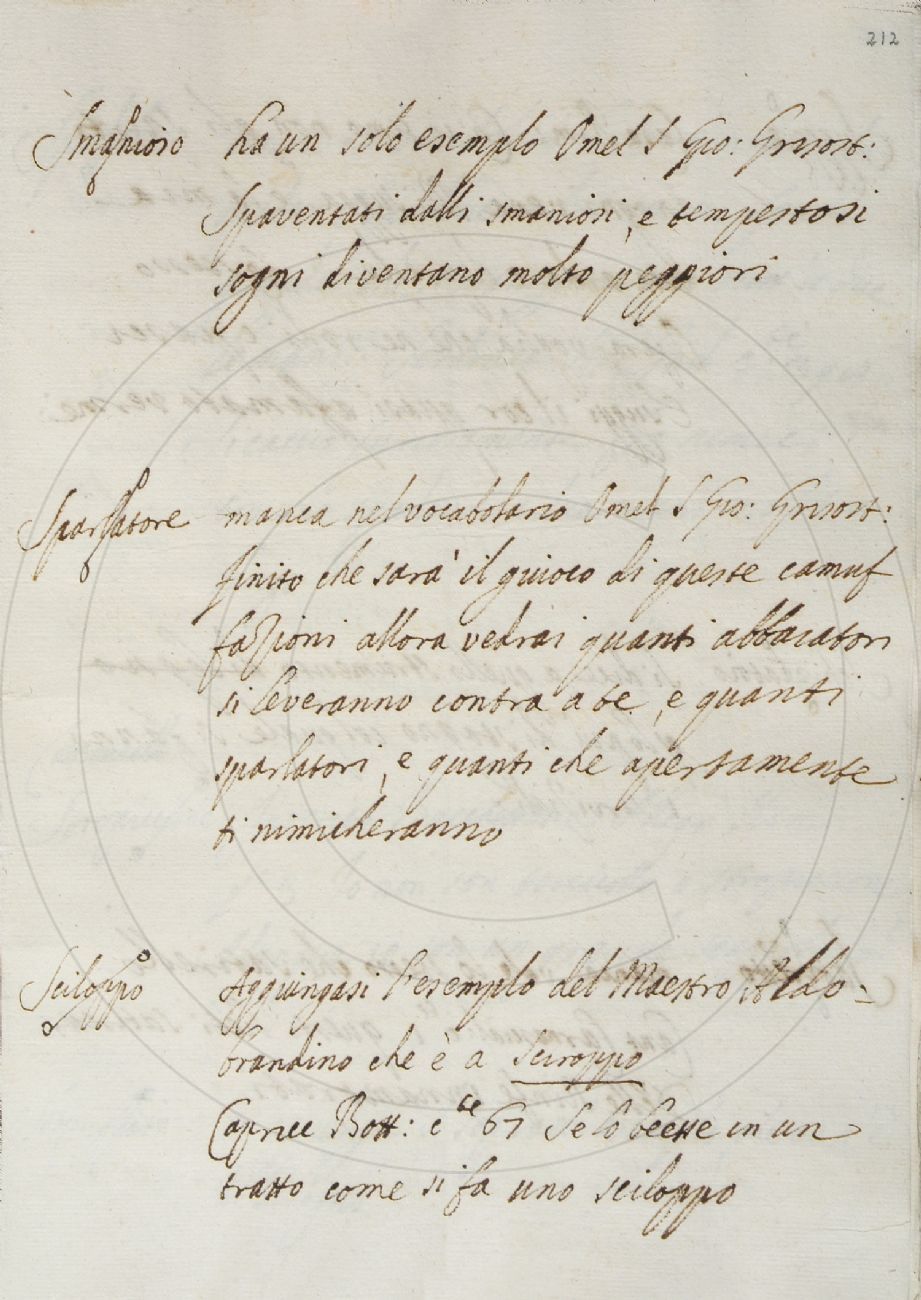 212
Smanioso ha un solo esemplo Omel S Gio: Grisost:
Spaventati dalli smaniosi, e tempestosi
sogni diventano molto peggiori
Sparlatore manca nel vocabolario Omel S Gio: Grisost:
finito che sarà il giuoco di queste camuf
fazioni allora vedrai quanti abbacatori
si leveranno contra a te, e quanti
sparlatori, e quanti che apertamente
ti nimicheranno
Sciloppo Aggiungasi l'esemplo del Maestro Aldo-
brandino che è a sciroppo
Caprice Bott: c te 67 Se lo beesse in un
tratto come si fa uno sciloppo